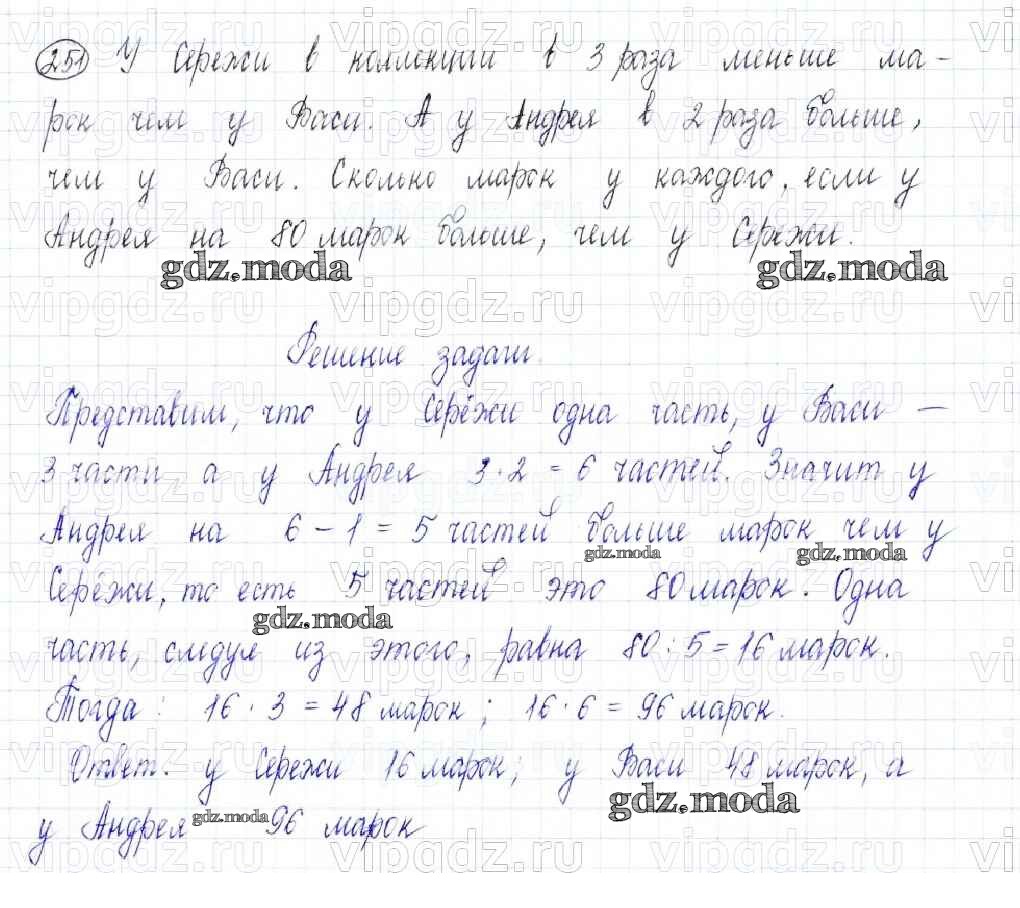 251 У Сережи в коллекции в 3 раза меньше ма-
рок чем у Васи. А у Андрея в 2 раза больше,
чем у Васи. Сколько марок у каждого, если у
Андрея на 80 марок больше, чем у Сережи.
gdz.moda gdz.moda
Решение задачи.
Представим, что у Серёжи одна часть, у Васи —
3 части, а у Андрея 3·2 = 6 частей. Значит у
Андрея на 6 – 1 = 5 частей больше марок чем у
gdz.moda gdz.moda
Серёжи, то есть 5 частей это 80 марок. Одна
gdz.moda
часть, следуя из этого, равна 80:5=16 марок.
Тогда: 16 · 3 = 48 марок; 16 · 6 = 96 марок.
Ответ. у Сережи 16 марок; у Васи 48 марок, а
gdz.moda
у Андрея gdz.moda 96 марок
vipgdz.ru